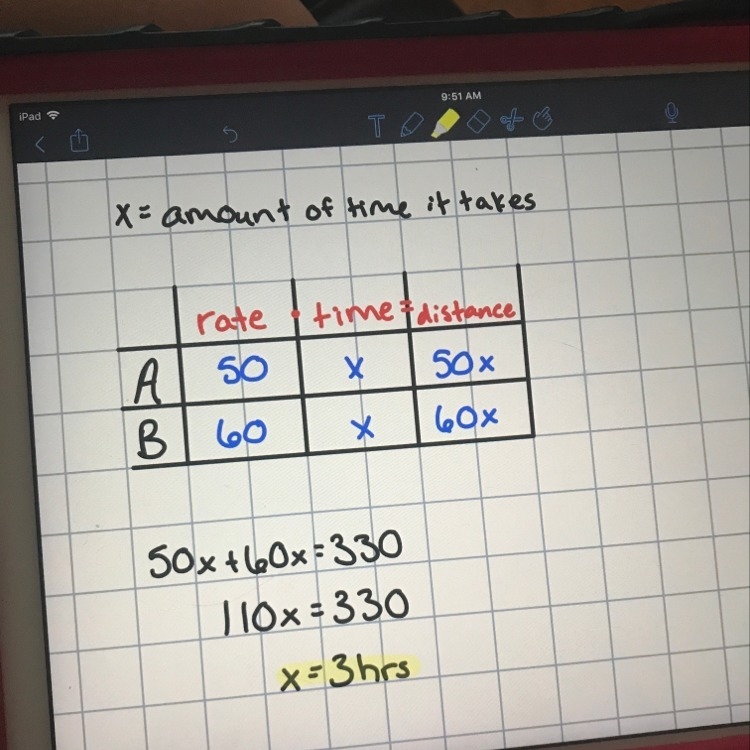 9:51 AM
iPad
T
x = amount of time it takes
rate • time = distance
A 50 x 50x
B 60 x 60x
50x + 60x = 330
110x = 330
x = 3hrs